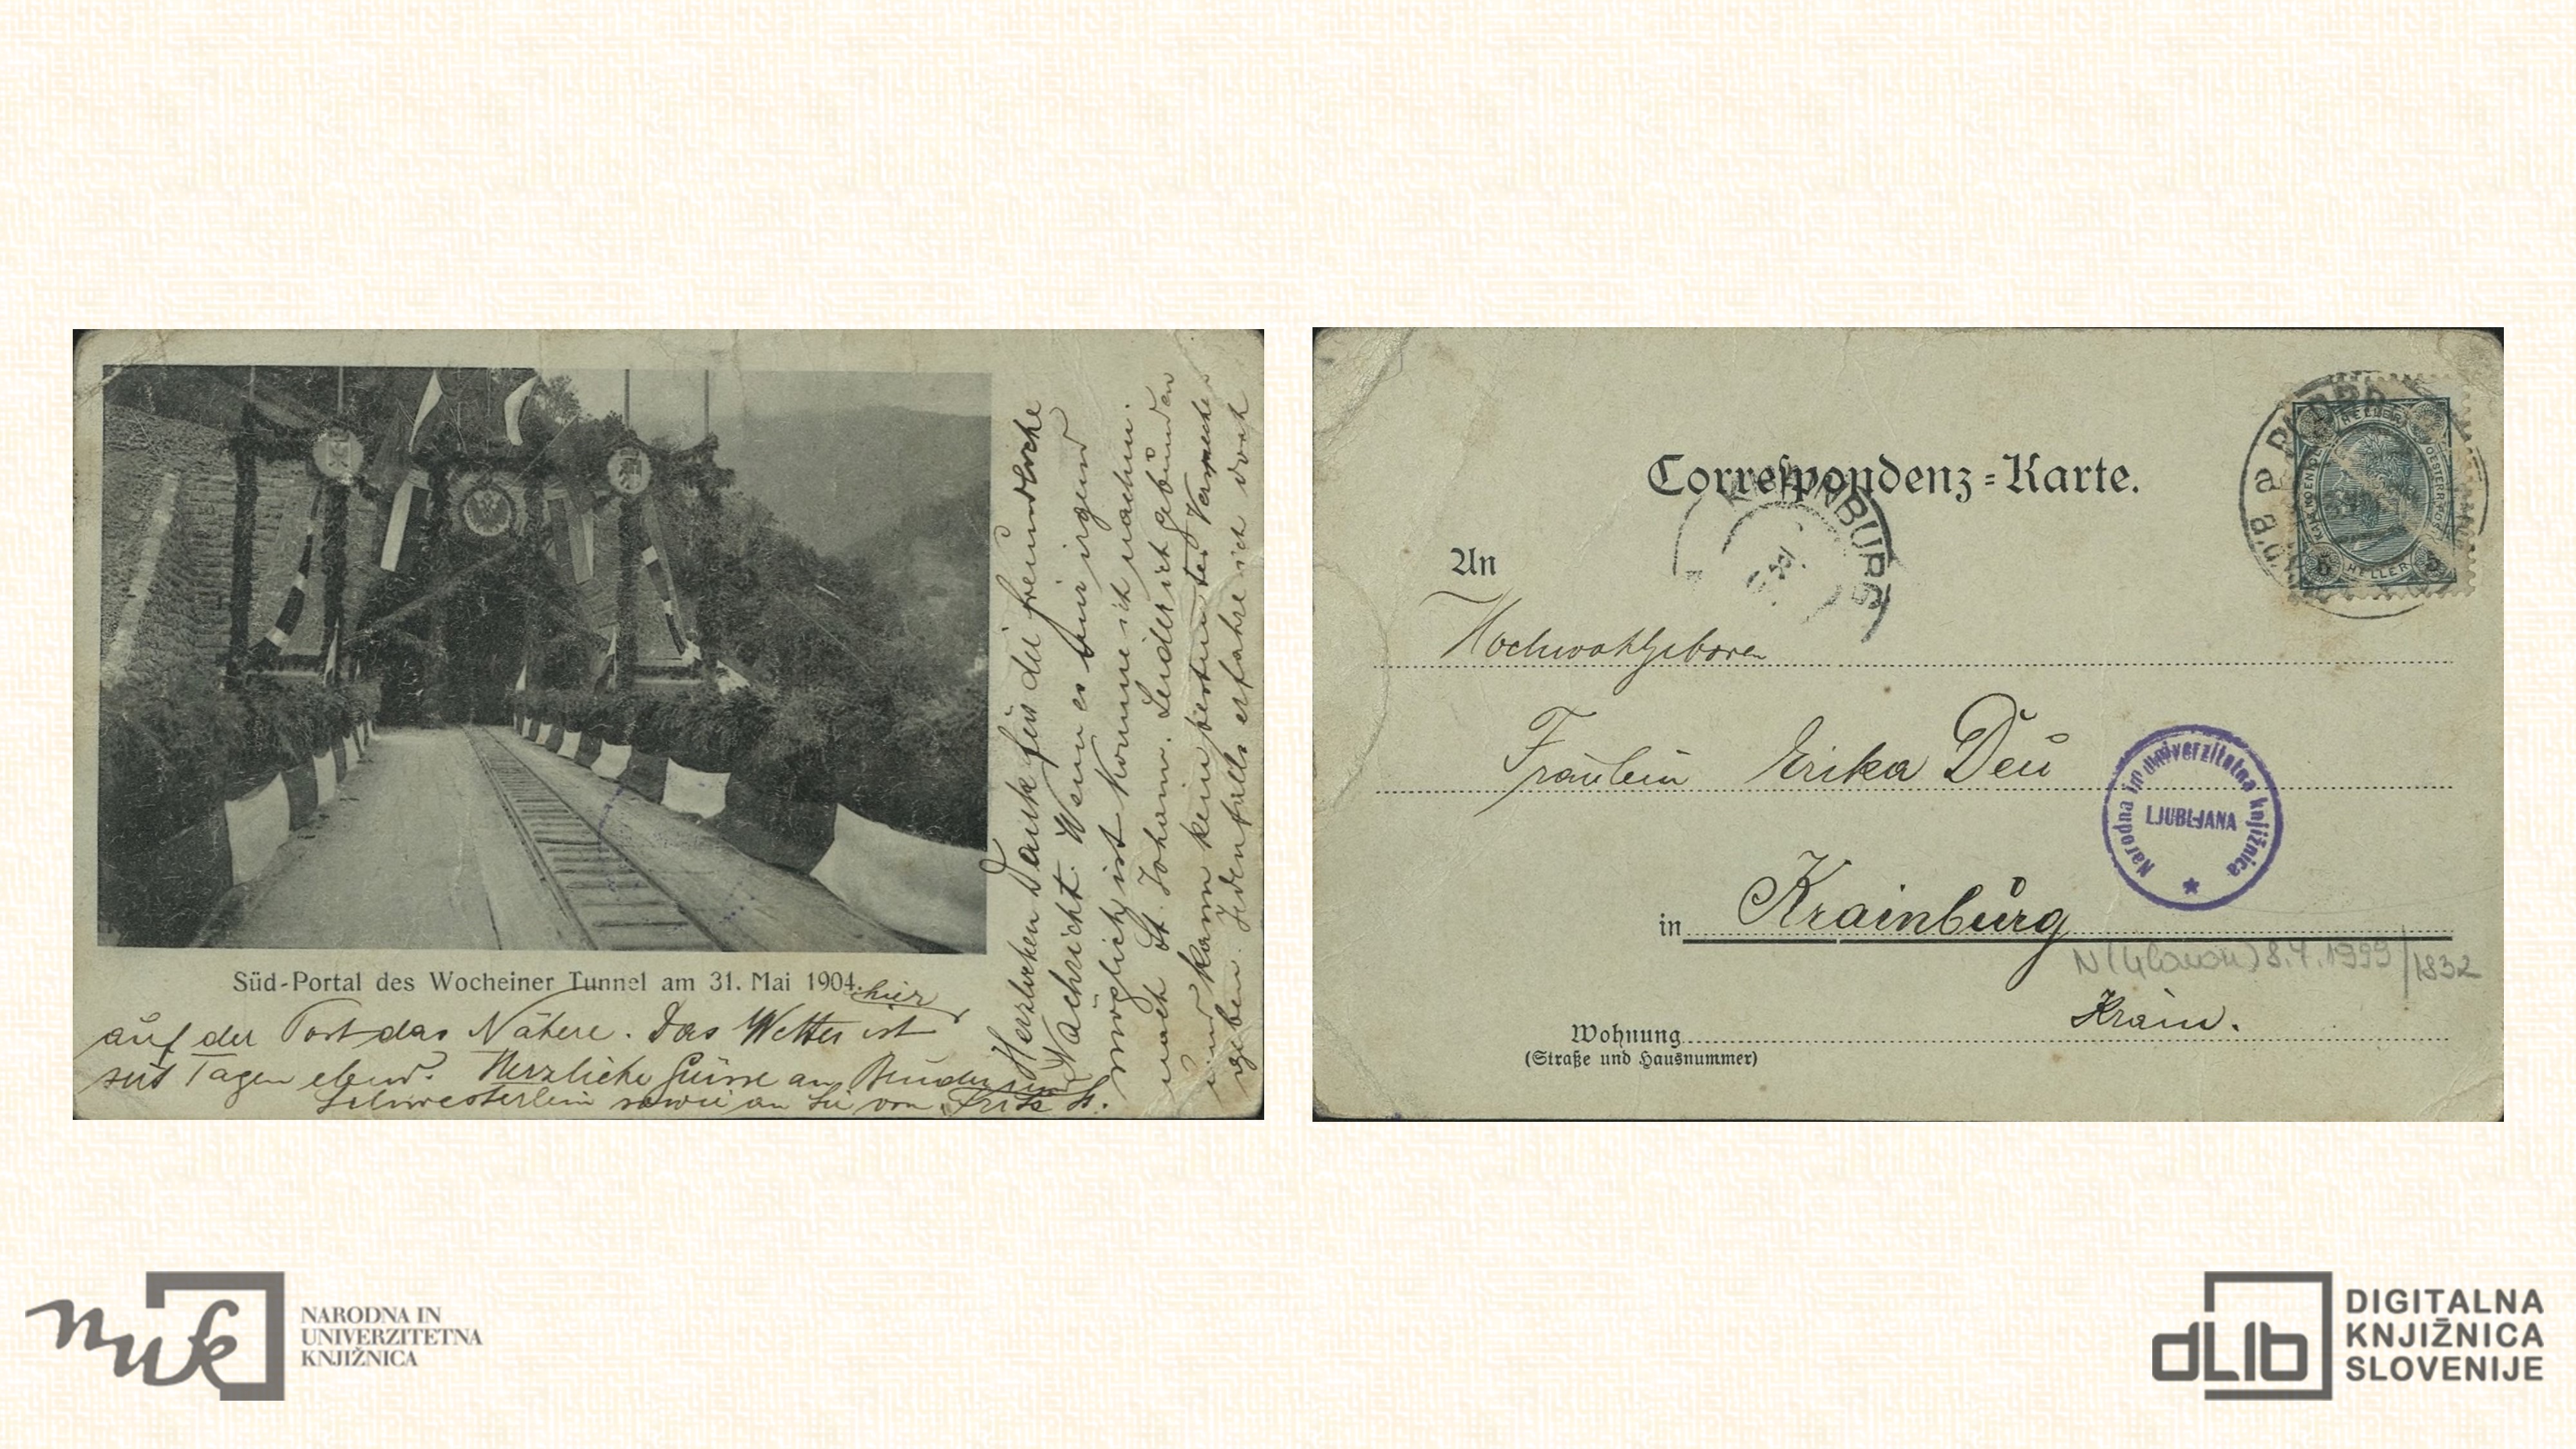 Süd-Portal des Wocheiner Tunnel am 31. Mai 1904.
Herzlichen Dank für die freundliche
Nachricht. Wenn es mir irgend
möglich ist komme ich nachm.
nach St. Johann. Leider ich gebunden
und kann kein bestimmtes
geben. Jedenfalls erfahre ich dort
hier
auf der Post das Nähere. Das Wetter ist
seit Tagen elend. Herzliche Grüsse an Bruder und
Schwesterlein sowie an Sie von Fritz
Correspondenz-Karte.
An
Hochwohlgeboren
Fräulein Erika Deu
in Krainburg
Krain.
Wohnung
(Straße und Hausnummer)
HELLER
5 HELLER 5
Narodna in univerzitetna knjižnica
LJUBLJANA
8.7.1999/1832
nuk
NARODNA IN
UNIVERZITETNA
KNJIŽNICA
dLib
DIGITALNA
KNJIŽNICA
SLOVENIJE